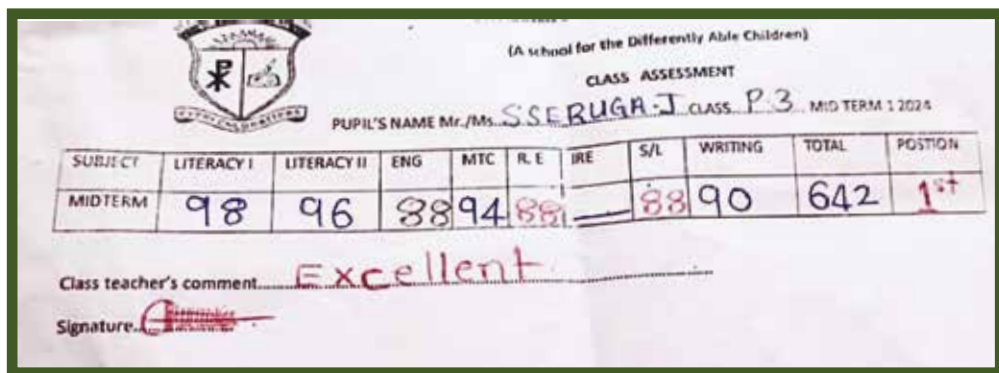 (A school for the Differently Able Children)
CLASS ASSESSMENT
PUPIL'S NAME Mr./Ms. SSERUGA-J CLASS P.3 MID TERM 1 2024
SUBJECT LITERACY I LITERACY II ENG MTC R.E IRE S/L WRITING TOTAL POSTION
MIDTERM 98 96 88 94 88 88 90 642 1st
Class teacher's comment Excellent
Signature